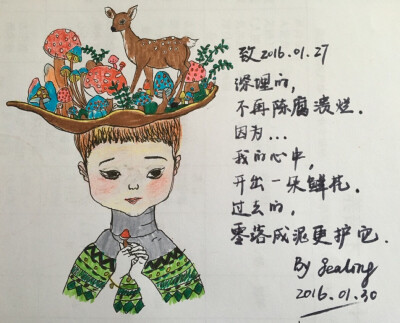 致2016.01.27
深埋的,
不再陈腐溃烂.
因为...
我的心中,
开出一朵鲜花.
过去的,
零落成泥更护它.
By Sealing
2016.01.30